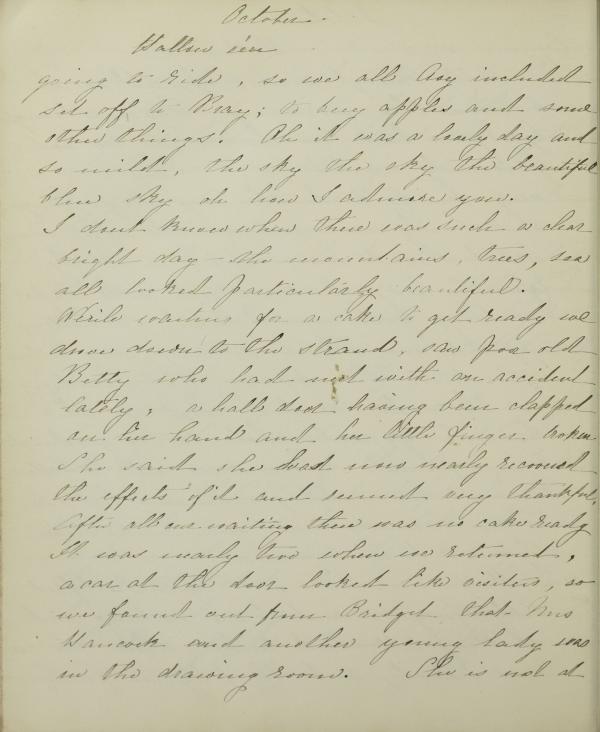 October.
Hallow e'en
going to ride, so we all Amy included
set off to Bray; to buy apples and some
other things. Oh it was a lovely day and
so mild, the sky the sky the beautiful
blue sky oh how I admire you.
I dont know when there was such a clear
bright day - the mountains, trees, sea
all looked particularly beautiful.
While waiting for a cake to get ready we
drove down to the strand, saw poor old
Betty who had met with an accident
lately, a hall door having been clapped
on her hand and her little finger broken
She said she had now nearly recovered
the effects of it and seemed very thankful.
After all our waiting there was no cake ready
It was nearly two when we returned,
a car at the door looked like visitors, so
we found out from Bridget that Mrs
Hancock and another young lady was
in the drawing room. She is not at